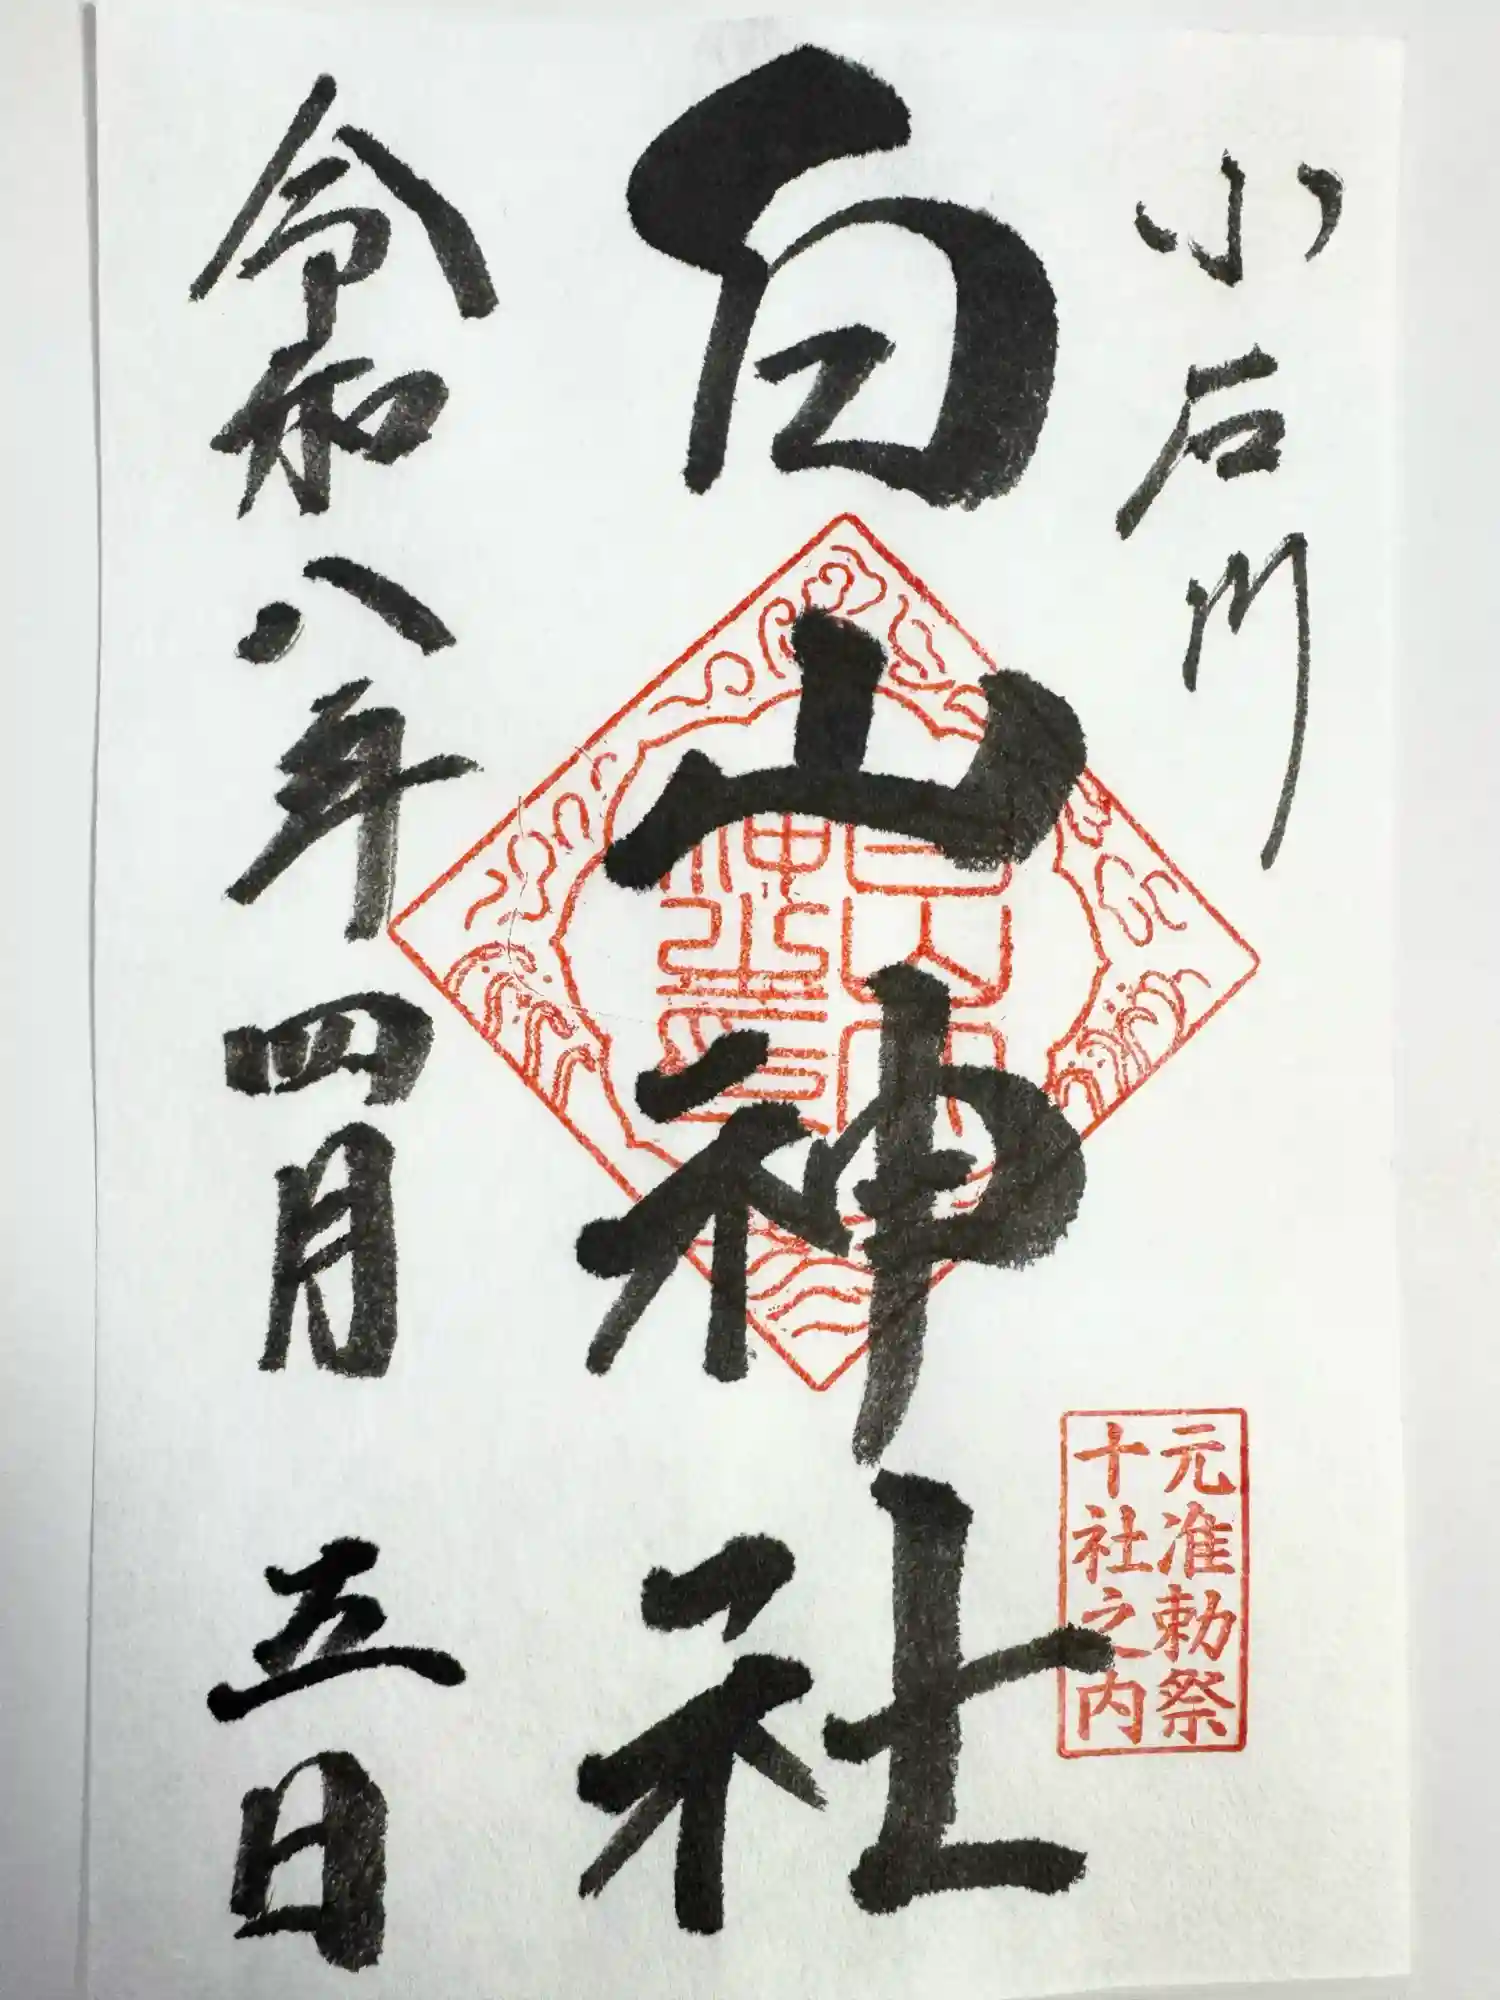 小石川
元准勅祭
十社之内
白山神社
令和八年四月五日